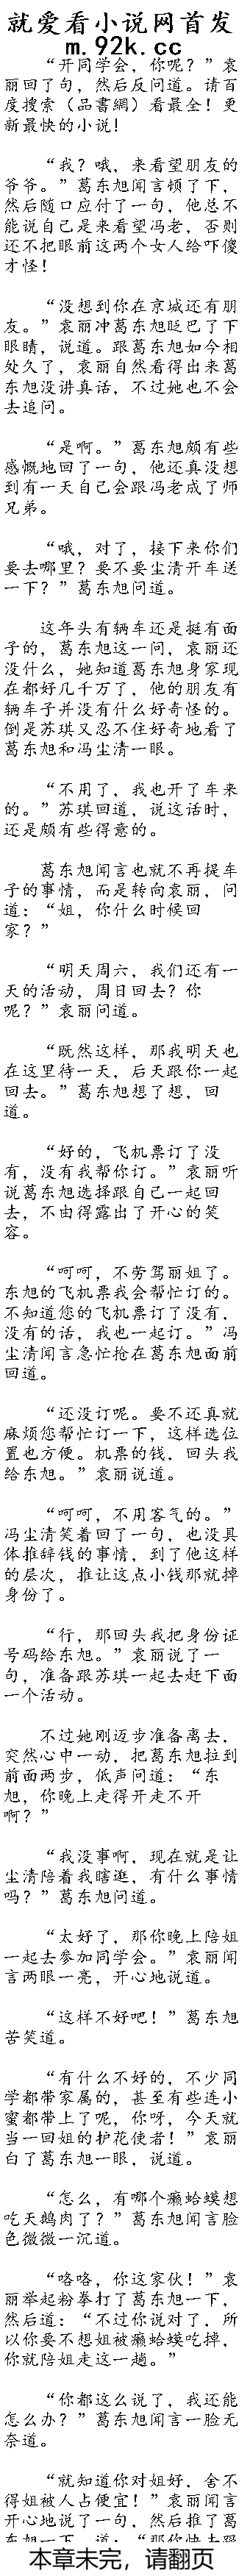 就爱看小说网首发
m.92k.cc
“开同学会，你呢？”袁
丽回了句，然后反问道。请百
度搜索（品書網）看最全！更
新最快的小说！
“我？哦，来看望朋友的
爷爷。”葛东旭闻言顿了下，
然后随口应付了一句，他总不
能说自己是来看望冯老，否则
还不把眼前这两个女人给吓傻
才怪！
“没想到你在京城还有朋
友。”袁丽冲葛东旭眨巴了下
眼睛，说道。跟葛东旭如今相
处久了，袁丽自然看得出来葛
东旭没讲真话，不过她也不会
去追问。
“是啊。”葛东旭颇有些
感慨地回了一句，他还真没想
到有一天自己会跟冯老成了师
兄弟。
“哦，对了，接下来你们
要去哪里？要不要尘清开车送
一下？”葛东旭问道。
这年头有辆车还是挺有面
子的，葛东旭这一问，袁丽还
没什么，她知道葛东旭身家现
在都好几千万了，他的朋友有
辆车子并没有什么好奇怪的。
倒是苏琪又忍不住好奇地看了
葛东旭和冯尘清一眼。
“不用了，我也开了车来
的。”苏琪回道，说这话时，
还是颇有些得意的。
葛东旭闻言也就不再提车
子的事情，而是转向袁丽，问
道：“姐，你什么时候回
家？”
“明天周六，我们还有一
天的活动，周日回去？你
呢？”袁丽问道。
“既然这样，那我明天也
在这里待一天，后天跟你一起
回去。”葛东旭想了想，回
道。
“好的，飞机票订了没
有，没有我帮你订。”袁丽听
说葛东旭选择跟自己一起回
去，不由得露出了开心的笑
容。
“呵呵，不劳驾丽姐了。
东旭的飞机票我会帮忙订的。
不知道您的飞机票订了没有，
没有的话，我也一起订。”冯
尘清闻言急忙抢在葛东旭面前
回道。
“还没订呢。要不还真就
麻烦您帮忙订一下，这样选位
置也方便。机票的钱，回头我
给东旭。”袁丽说道。
“呵呵，不用客气的。”
冯尘清笑着回了一句，也没具
体推辞钱的事情，到了他这样
的层次，推让这点小钱那就掉
身份了。
“行，那回头我把身份证
号码给东旭。”袁丽说了一
句，准备跟苏琪一起去赶下面
一个活动。
不过她刚迈步准备离去，
突然心中一动，把葛东旭拉到
前面两步，低声问道：“东
旭，你晚上走得开走不开
啊？”
“我没事啊，现在就是让
尘清陪着我瞎逛，有什么事情
吗？”葛东旭问道。
“太好了，那你晚上陪姐
一起去参加同学会。”袁丽闻
言两眼一亮，开心地说道。
“这样不好吧！”葛东旭
苦笑道。
“有什么不好的，不少同
学都带家属的，甚至有些连小
蜜都带上了呢，你呀，今天就
当一回姐的护花使者！”袁丽
白了葛东旭一眼，说道。
“怎么，有哪个癞蛤蟆想
吃天鹅肉了？”葛东旭闻言脸
色微微一沉道。
“咯咯，你这家伙！”袁
丽举起粉拳打了葛东旭一下，
然后道：“不过你说对了，所
以你要不想姐被癞蛤蟆吃掉，
你就陪姐走这一趟。”
“你都这么说了，我还能
怎么办？”葛东旭闻言一脸无
奈道。
“就知道你对姐好，舍不
得姐被人占便宜！”袁丽闻言
开心地说了一句，然后推了葛
东旭一下，道：“那你快去跟
本章未完，请翻页